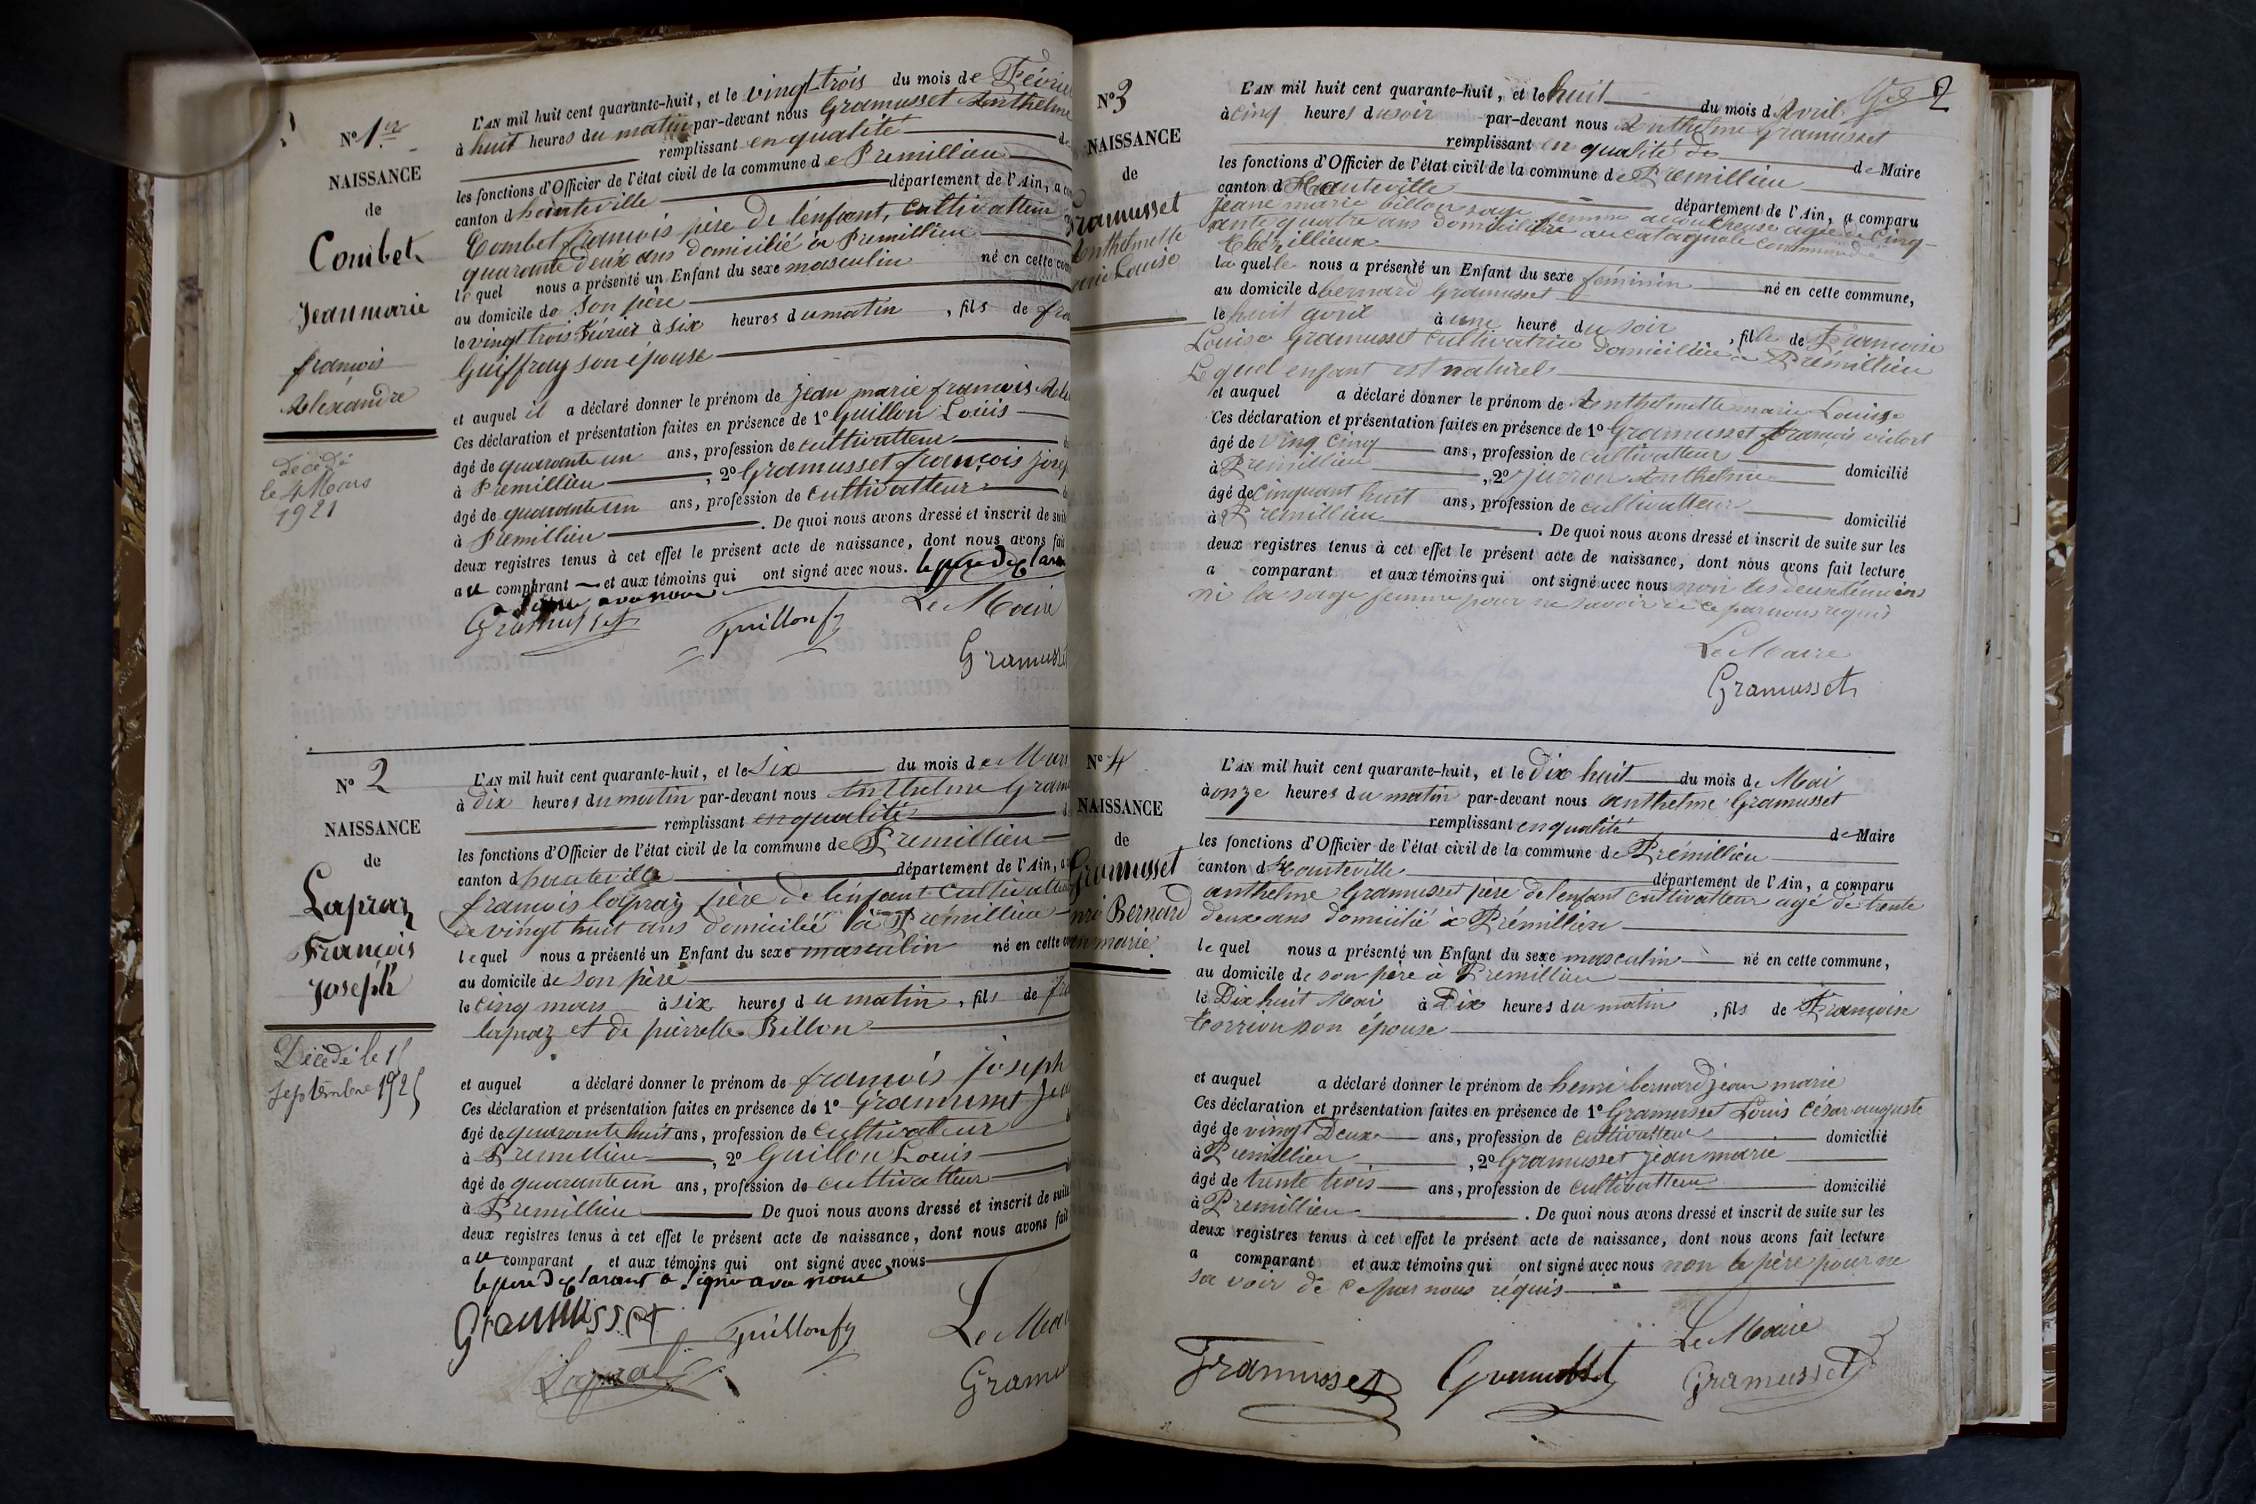 N° 1er
NAISSANCE
de
Combet
Jean marie
françois
Alexandre
Décédé
le 4 Mars
1921
L'AN mil huit cent quarante-huit, et le vingt trois du mois de Févrie
à huit heures du matin par-devant nous Gramusset Anthelme
remplissant en qualité de
les fonctions d'Officier de l'état civil de la commune de Premillieu
canton d hauteville département de l'Ain, a com
Combet françois père de l'enfant, cultivatteur
quarante deux ans domicilié à Premillieu
le quel nous a présenté un Enfant du sexe masculin né en cette com
au domicile de son père
le vingt trois Février à six heures du matin, fils de fra
Guiffray son épouse
et auquel il a déclaré donner le prénom de jean marie françois Alex
Ces déclaration et présentation faites en présence de 1° Guillon Louis
âgé de quarante un ans, profession de cultivatteur d
à Premillieu, 2° Gramusset françois josep
âgé de quarante un ans, profession de cultivatteur d
à Premillieu. De quoi nous avons dressé et inscrit de suite
deux registres tenus à cet effet le présent acte de naissance, dont nous avons fait
au comparant et aux témoins qui ont signé avec nous. le père declaran
a signé avec nous
Gramusset Guillon fz Le Maire
Gramusset
N° 2
NAISSANCE
de
Lapraz
François
Joseph
Décédé le 15
septembre 1925
L'AN mil huit cent quarante-huit, et le six du mois de Mars
à dix heures du matin par-devant nous Anthelme Gramu
remplissant en qualité d
les fonctions d'Officier de l'état civil de la commune de Premillieu
canton d hauteville département de l'Ain, a
françois lapraz père de l'enfant cultivatteur
de vingt huit ans domicilié à Prémillieu
le quel nous a présenté un Enfant du sexe masculin né en cette co
au domicile de son père
le cinq mars à six heures du matin, fils de fra
lapraz et de pierrette Billon
et auquel a déclaré donner le prénom de françois joseph
Ces déclaration et présentation faites en présence de 1° Gramusset Jea
âgé de quarante huit ans, profession de cultivatteur d
à Premillieu, 2° Guillon Louis
âgé de quarante un ans, profession de cultivatteur
à Premillieu De quoi nous avons dressé et inscrit de suite
deux registres tenus à cet effet le présent acte de naissance, dont nous avons fait
au comparant et aux témoins qui ont signé avec nous
le père declarant a signé avec nous
Gramusset Guillon fz Le Mai
Lapraz Gramu
2
N° 3
NAISSANCE
de
Gramusset
Anthelmette
marie Louise
L'AN mil huit cent quarante-huit, et le huit du mois d Avril
à cinq heures du soir par-devant nous Anthelme Gramusset
remplissant en qualité de de Maire
les fonctions d'Officier de l'état civil de la commune de Premillieu
canton d Hauteville département de l'Ain, a comparu
jeane marie billon sage femme accoucheuse agée de cinq-
ante quatre ans domiciliée au commune de
Thézillieux
la quelle nous a présenté un Enfant du sexe féminin né en cette commune,
au domicile d bernard Gramusset
le huit avril à une heure du soir, fille de Françoise
Louise Gramusset cultivatrice domiciliée à Prémillieu
Lequel enfant est naturel
et auquel a déclaré donner le prénom de Anthelmette marie Louise
Ces déclaration et présentation faites en présence de 1° Gramusset françois victort
âgé de vingt cinq ans, profession de cultivatteur domicilié
à Premillieu, 2° Anthelme
âgé de cinquant huit ans, profession de cultivatteur domicilié
à Premillieu. De quoi nous avons dressé et inscrit de suite sur les
deux registres tenus à cet effet le présent acte de naissance, dont nous avons fait lecture
a comparant et aux témoins qui ont signé avec nous non les deux témoins
ni la sage femme pour ne savoir de ce par nous requis
Le Maire
Gramusset
N° 4
NAISSANCE
de
Gramusset
nri Bernard
n marie
L'AN mil huit cent quarante-huit, et le Dix huit du mois de Mai
à onze heures du matin par-devant nous anthelme Gramusset
remplissant en qualité de Maire
les fonctions d'Officier de l'état civil de la commune de Prémillieu
canton d Hauteville département de l'Ain, a comparu
anthelme Gramusset père de l'enfant cultivatteur agé de trente
deux ans domicilié à Prémillieu
le quel nous a présenté un Enfant du sexe masculin né en cette commune,
au domicile de son père à Premillieu
le Dix huit Mai à Dix heures du matin, fils de Françoise
son épouse
et auquel a déclaré donner le prénom de henri bernard jean marie
Ces déclaration et présentation faites en présence de 1° Gramusset Louis César auguste
âgé de vingt Deux ans, profession de cultivatteur domicilié
à Premillieu, 2° Gramusset jean marie
âgé de trente trois ans, profession de cultivatteur domicilié
à Premillieu. De quoi nous avons dressé et inscrit de suite sur les
deux registres tenus à cet effet le présent acte de naissance, dont nous avons fait lecture
a comparant et aux témoins qui ont signé avec nous non le père pour ne
sa voir de ce par nous réquis
Le Maire
Gramusset Gramusset Gramusset